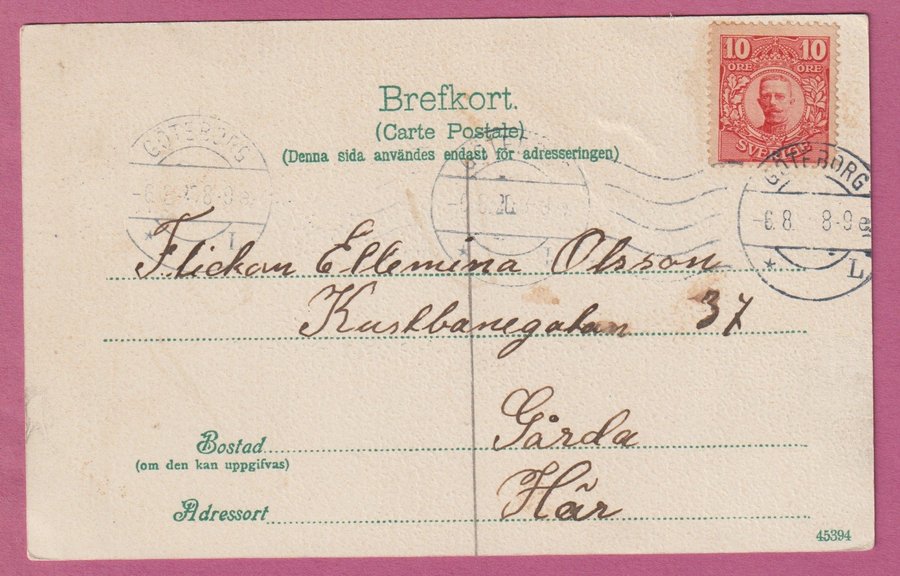 10 10
ÖRE ÖRE
SVERIGE
Brefkort.
(Carte Postale)
(Denna sida användes endast för adresseringen)
GÖTEBORG
8-9
L
GÖTEBORG
-6.8. 8-9 em
L
Flickan Ellemina Olsson
Kustbanegatan 37
Gårda
Bostad
(om den kan uppgifvas)
Här
Adressort
45394